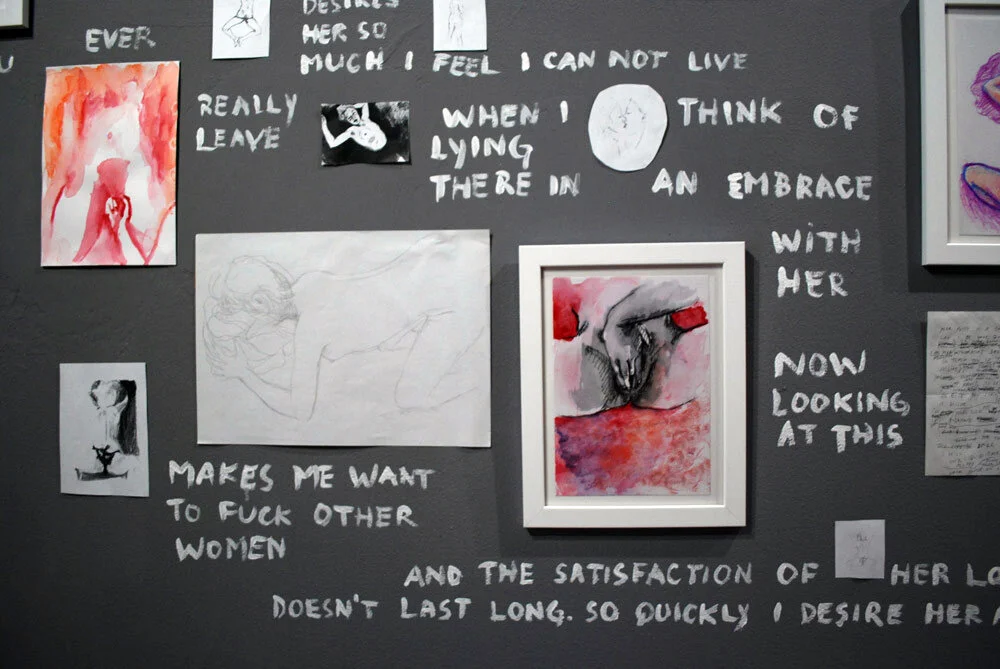 DESIRES
HER SO
EVER
MUCH I FEEL I CAN NOT LIVE
U
REALLY
LEAVE
WHEN I THINK OF
LYING
THERE IN AN EMBRACE
WITH
HER
NOW
LOOKING
AT THIS
MAKES ME WANT
TO FUCK OTHER
WOMEN
AND THE SATISFACTION OF HER LO
DOESN'T LAST LONG. SO QUICKLY I DESIRE HER